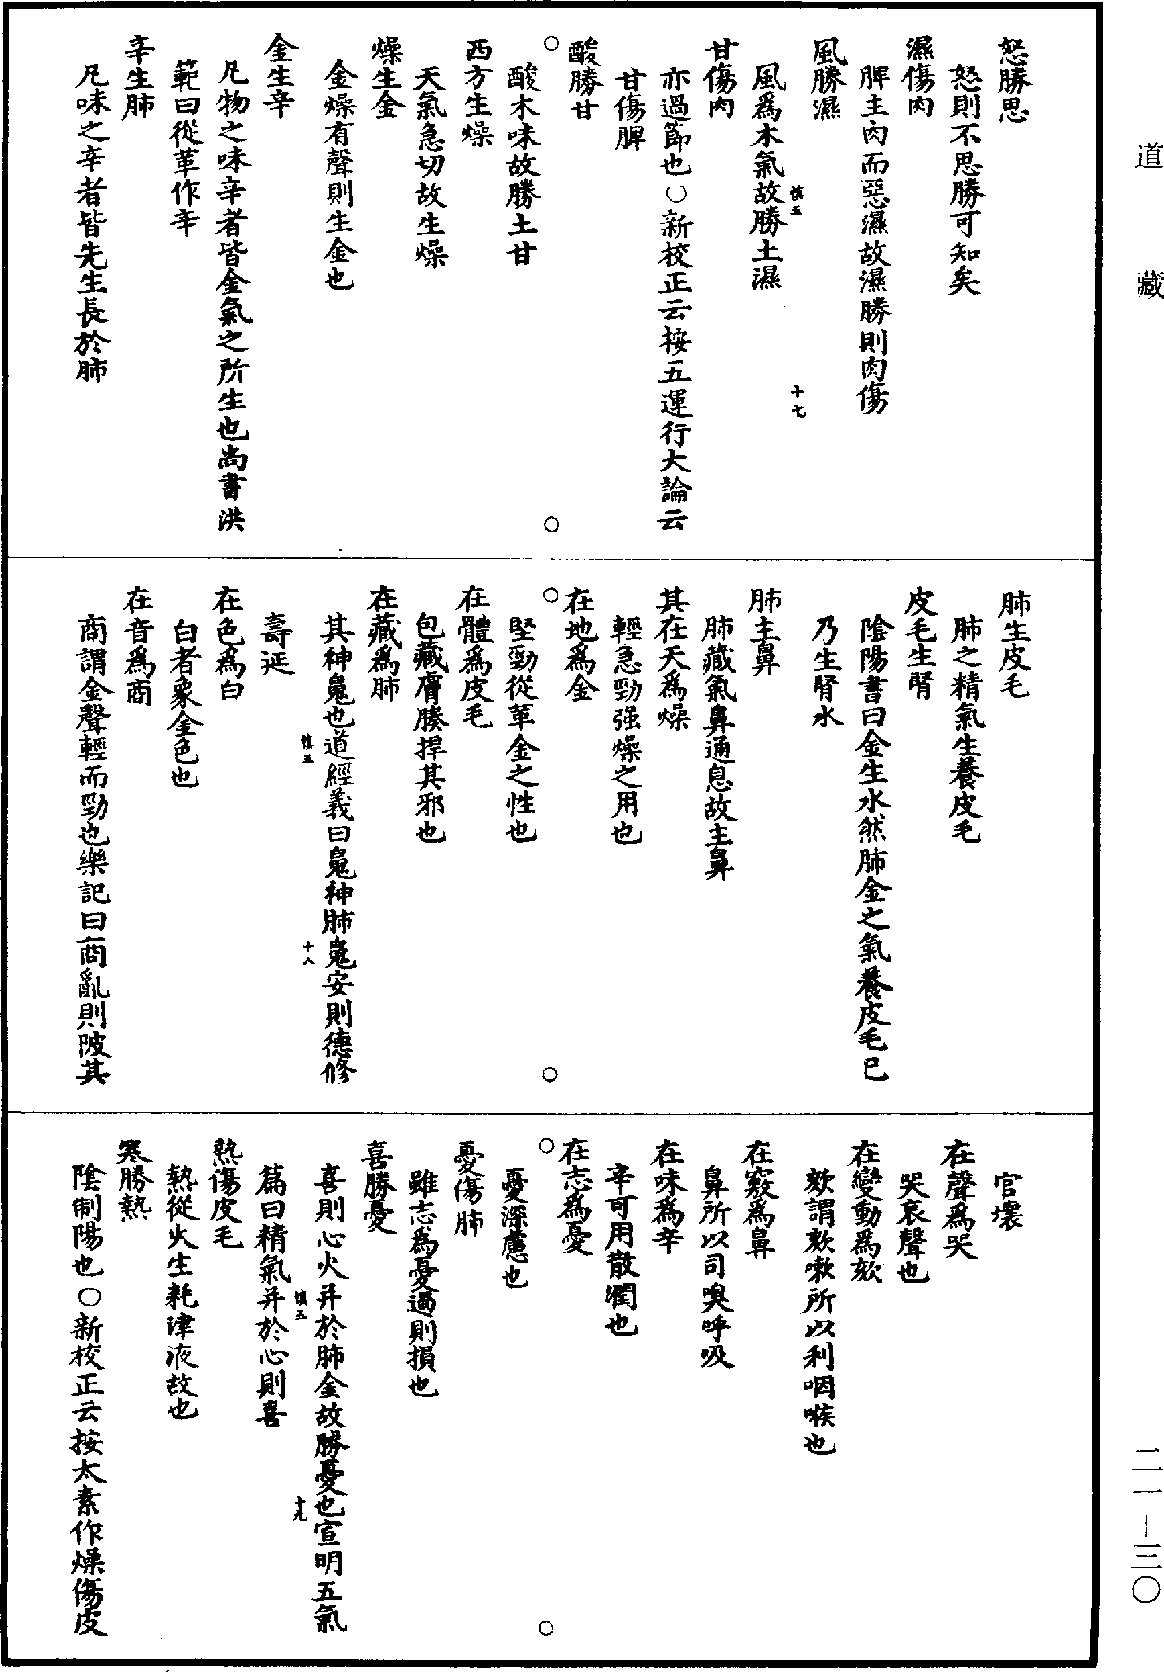 道藏
怒勝思
怒則不思勝可知矣
濕傷肉
脾主肉而惡濕故濕勝則肉傷
風勝濕
慎五 十七
風爲木氣故勝土濕
甘傷肉
亦過節也○新校正云按五運行大論云
甘傷脾
酸勝甘
酸木味故勝土甘
西方生燥
天氣急切故生燥
燥生金
金燥有聲則生金也
金生辛
凡物之味辛者皆金氣之所生也尚書洪
範曰從革作辛
辛生肺
凡味之辛者皆先生長於肺
肺生皮毛
肺之精氣生養皮毛
皮毛生腎
陰陽書曰金生水然肺金之氣養皮毛已
乃生腎水
肺主鼻
肺藏氣鼻通息故主鼻
其在天爲燥
輕急勁强燥之用也
在地爲金
堅勁從革金之性也
在體爲皮毛
包藏膚腠捍其邪也
在藏爲肺
其神魄也道經義曰魄神肺魄安則德修
慎五 十八
壽延
在色爲白
白者象金色也
在音爲商
商謂金聲輕而勁也樂記曰商亂則陂其
官壞
在聲爲哭
哭哀聲也
在變動爲欬
欬謂欬嗽所以利咽喉也
在竅爲鼻
鼻所以司嗅呼吸
在味爲辛
辛可用散潤也
在志爲憂
憂深慮也
憂傷肺
雖志爲憂過則損也
喜勝憂
喜則心火并於肺金故勝憂也宣明五氣
慎五 十九
篇曰精氣并於心則喜
熱傷皮毛
熱從火生耗津液故也
寒勝熱
陰制陽也○新校正云按太素作燥傷皮
二一–三〇